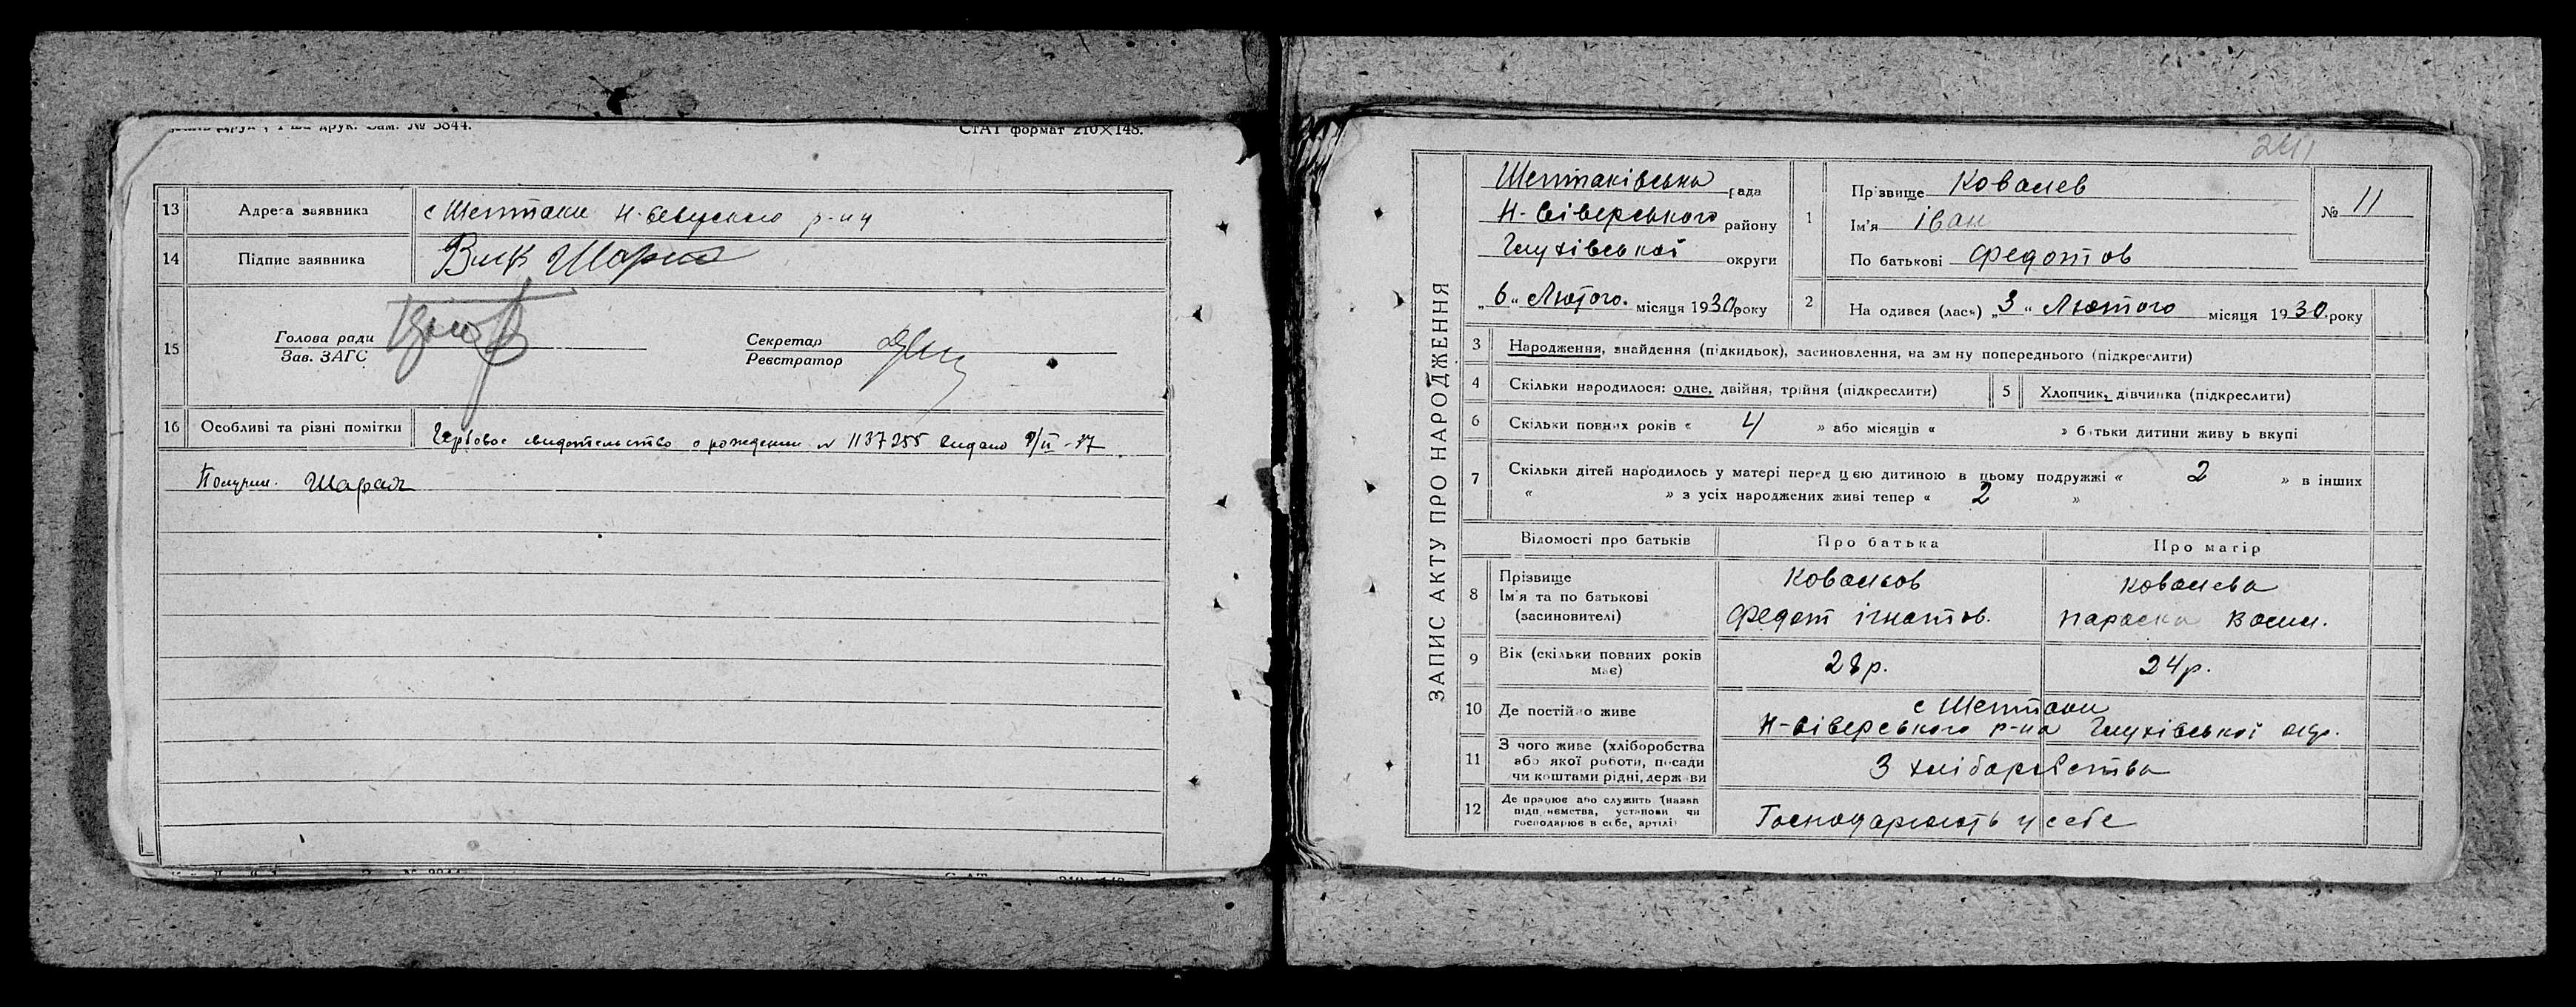 друк. Зам. № 3844.
СТАТ формат 210×148.
13 Адреса заявника с Шептаки Н-Северского р-ну
14 Підпис заявника
15 Голова ради
Зав. ЗАГС
Секретар
Реєстратор
16 Особливі та різні помітки Гербовое свидетельство о рождении № 1137255 выдано 9/II-37
Получил.
241
ЗАПИС АКТУ ПРО НАРОДЖЕННЯ
Шептаківська рада
Н-Сіверського району
Глухівської округи
„6“ Лютого. місяця 1930 року
1 Прізвище Ковалев
Ім'я Іван
По батькові Федотов
№ 11
2 Народився (лась) „3“ Лютого місяця 1930 року
3 Народження, знайдення (підкидьок), засиновлення, на зміну попереднього (підкреслити)
4 Скільки народилося: одне, двійня, трійня (підкреслити)
5 Хлопчик, дівчинка (підкреслити)
6 Скільки повних років « 4 » або місяців « » батьки дитини живуть вкупі
7 Скільки дітей народилось у матері перед цією дитиною в цьому подружжі « 2 » в інших
« » з усіх народжених живі тепер « 2 »
Відомості про батьків Про батька Про матір
8 Прізвище Ковальов Ковалева
Ім'я та по батькові
(засиновителі) Федот Ігнатов. Параска Васил.
9 Вік (скільки повних років має) 28 р. 24 р.
10 Де постійно живе с Шептаки
Н-Сіверського р-на Глухівської окр.
11 З чого живе (хліборобства
або якої роботи, посади
чи коштами рідні, держави З хліборобства
12 Де працює або служить (назва
підприємства, установи чи
господарює в себе, артілі) Господарюють у себе